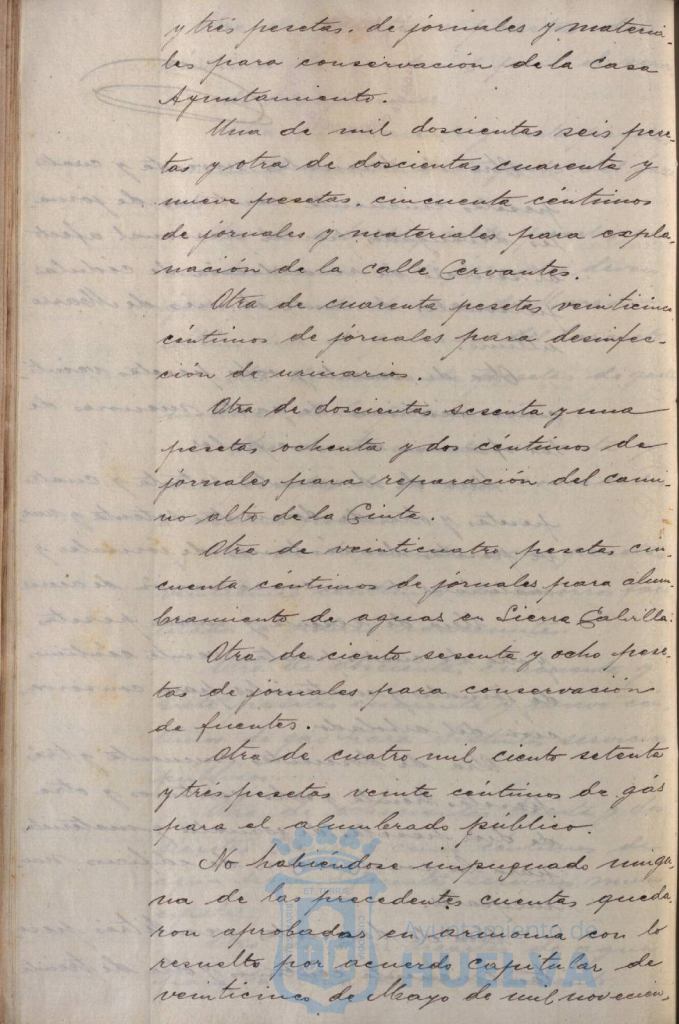 y tres pesetas. de jornales y materia-
les para conservación de la Casa
Ayuntamiento.
Una de mil doscientas seis pese-
tas y otra de doscientas cuarenta y
nueve pesetas. cincuenta céntimos
de jornales y materiales para expla-
nación de la calle Cervantes.
Otra de cuarenta pesetas veinticinco
céntimos de jornales para desinfec-
ción de urinarios.
Otra de doscientas sesenta y una
pesetas ochenta y dos céntimos de
jornales para reparación del cami-
no alto de la Cinta.
Otra de veinticuatro pesetas cin-
cuenta céntimos de jornales para alum-
bramiento de aguas en Sierra Calvilla.
Otra de ciento sesenta y ocho pese-
tas de jornales para conservación
de fuentes.
Otra de cuatro mil ciento setenta
y tres pesetas veinte céntimos de gás
para el alumbrado público.
No habiéndose impugnado ningu-
na de las precedentes cuentas queda-
ron aprobadas en armonia con lo
resuelto por acuerdo capitular de
veinticinco de Mayo de mil novecien-
Ayuntamiento de
HUELVA